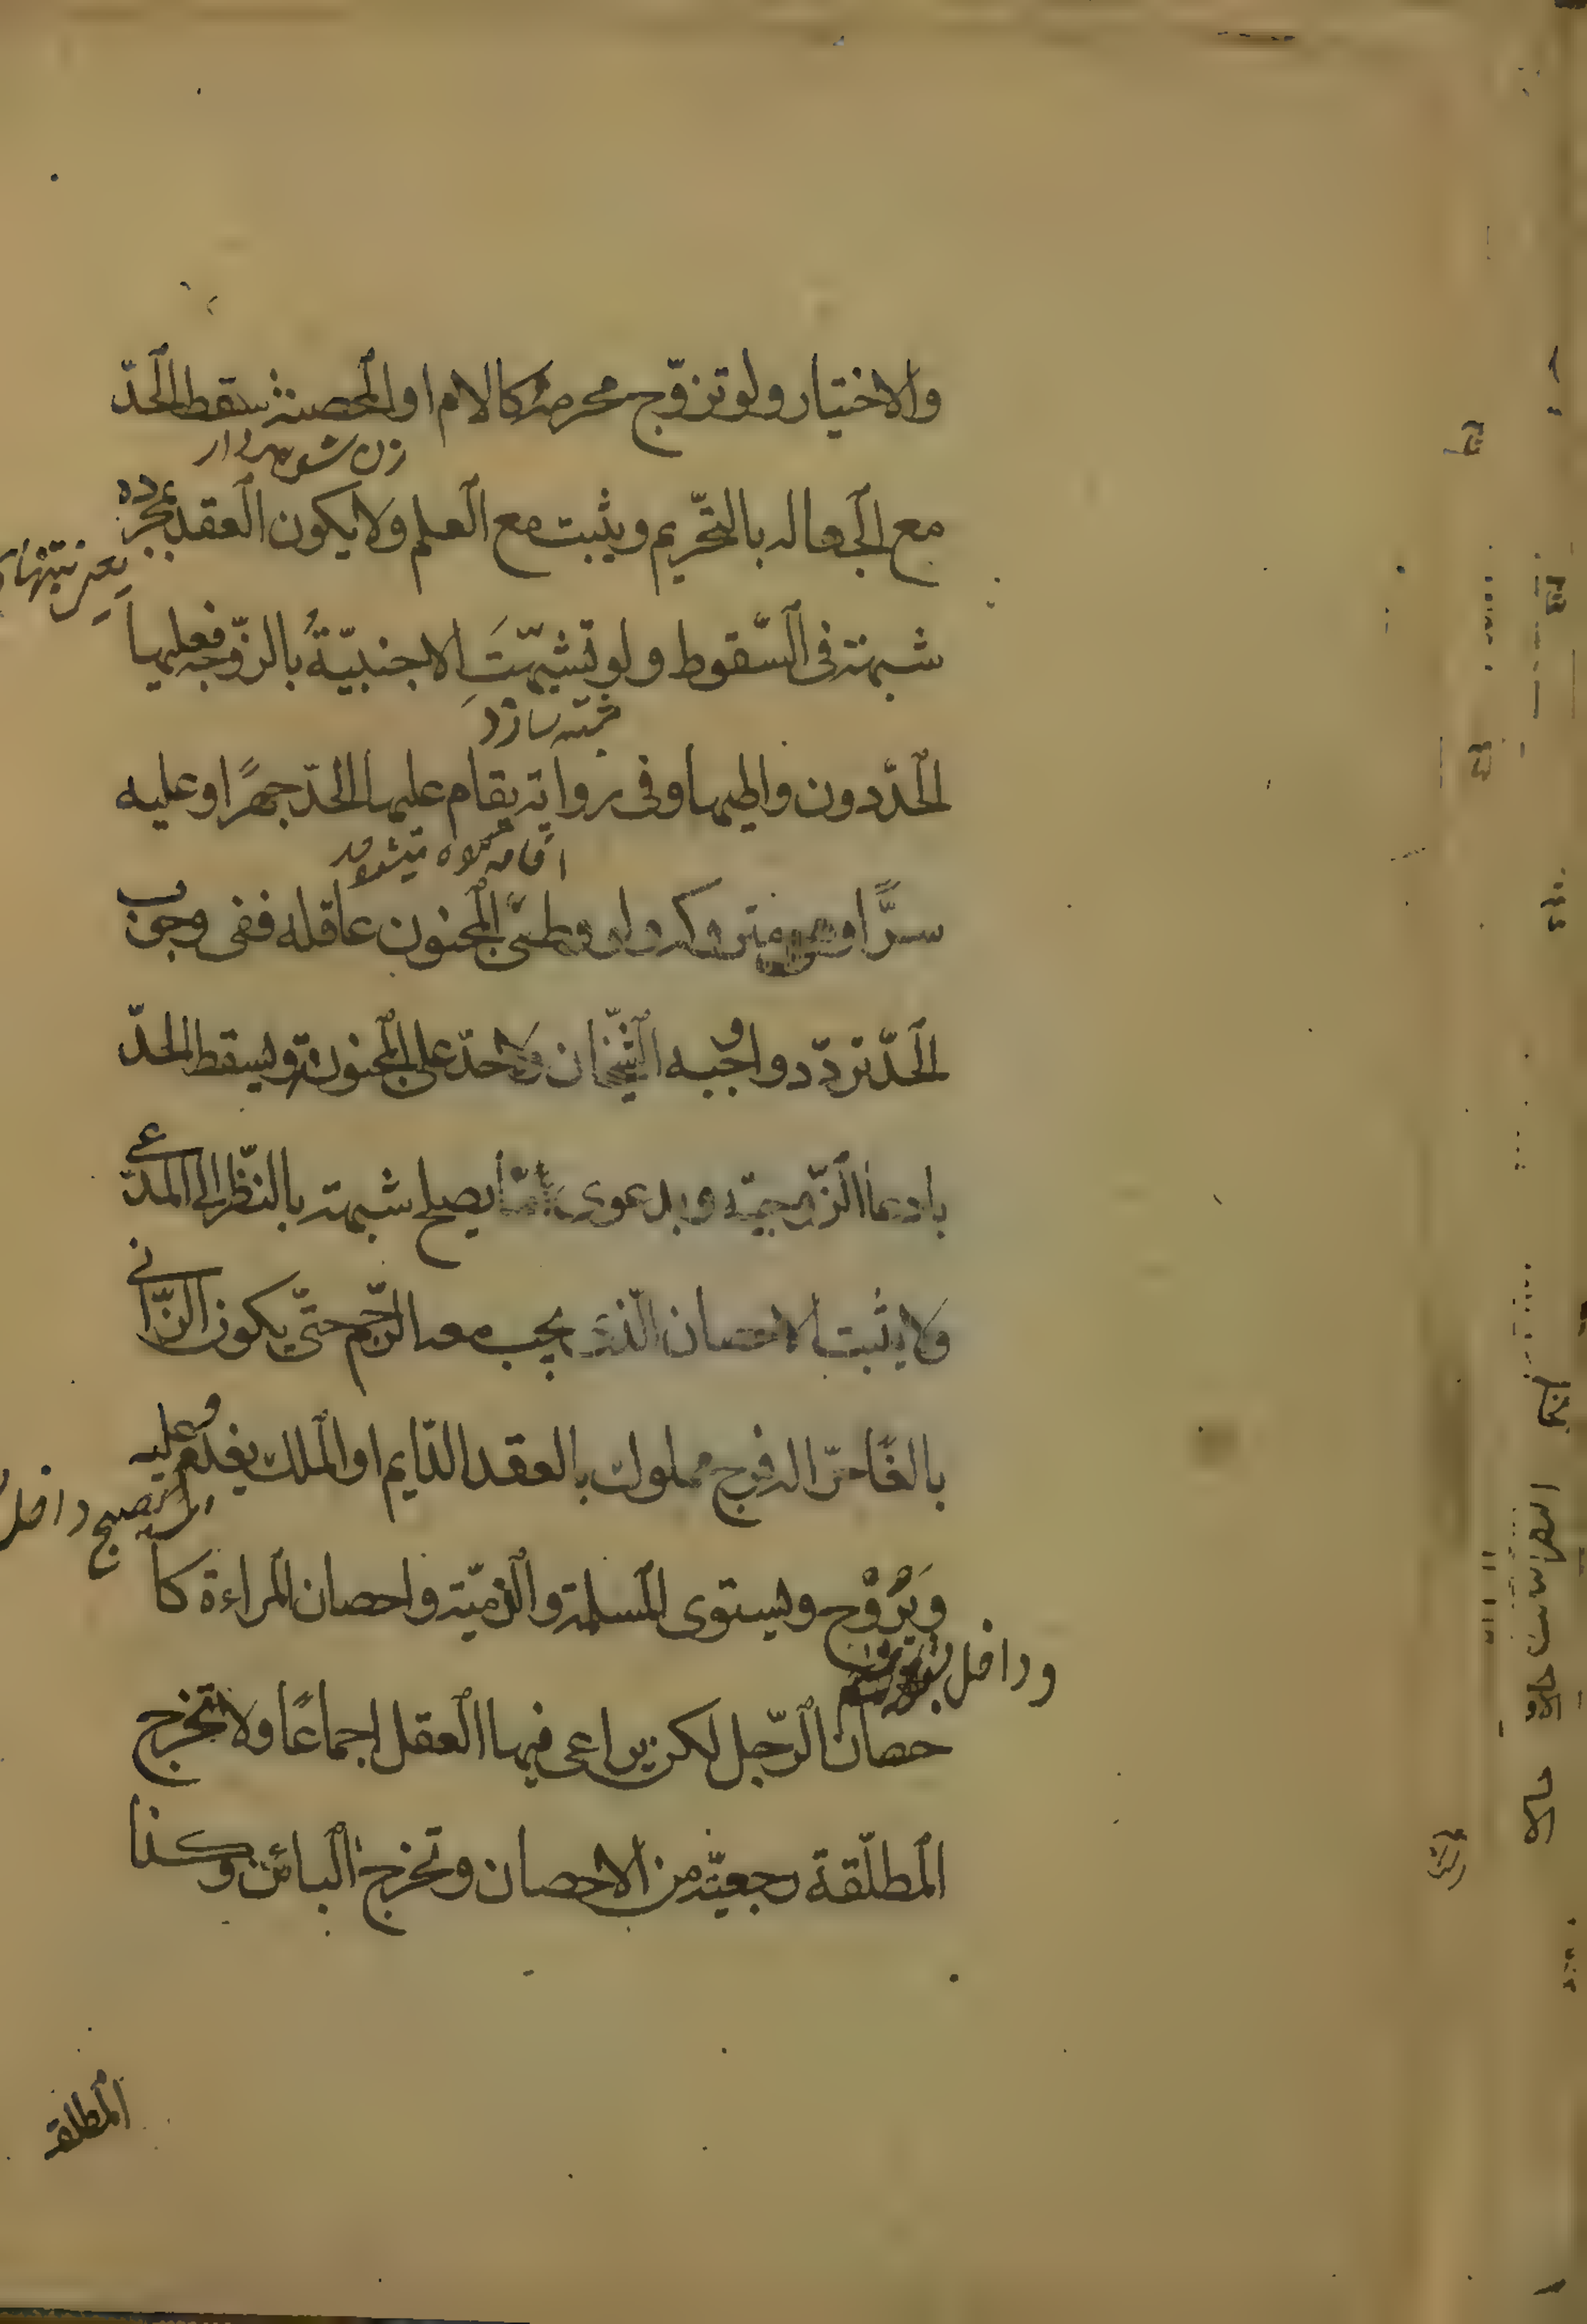 والاختيار ولو تزوّج محرمة كالام او المحصنة سقط الحدّ
زن شوهردار
مع الجهالة بالتحّريم ويثبت مع العلم ولا يكون العقد بمجرّده
شبهة فى السّقوط ولو تشبهّت الاجنبيّةُ بالزّوجة فعليها
الحدّ دون واطيها وفى رواية يقام عليها الحدّ جهرًا وعليه
سرًّا وهى متروكة ولو وطئ المجنون عاقلة ففى وجوب
الحدّ تردّد واوجبه الشّيخان ولا حدّ على المجنونة ويسقط الحدّ
بادعا الزّوجيّة وبدعوى ما يصلح شبهة بالنّظر الى المدّعى
ولا يثبت الاحصان الّذى يجب معه الرّجم حتىّ يكون الزّانى
بالغًا حرّا له فرج مملوك بالعقد الدّايم او الملك يغدو عليه
وَيَرُوْح ويستوى المسلمة والذّميّة واحصان المراءة كا
ودافل
حصان الرّجل لكن يراعى فيها العقل اجماعًا ولا تخرج
المطلّقة رجعيّة من الاحصان وتخرج البائن وكذا
المطلقه